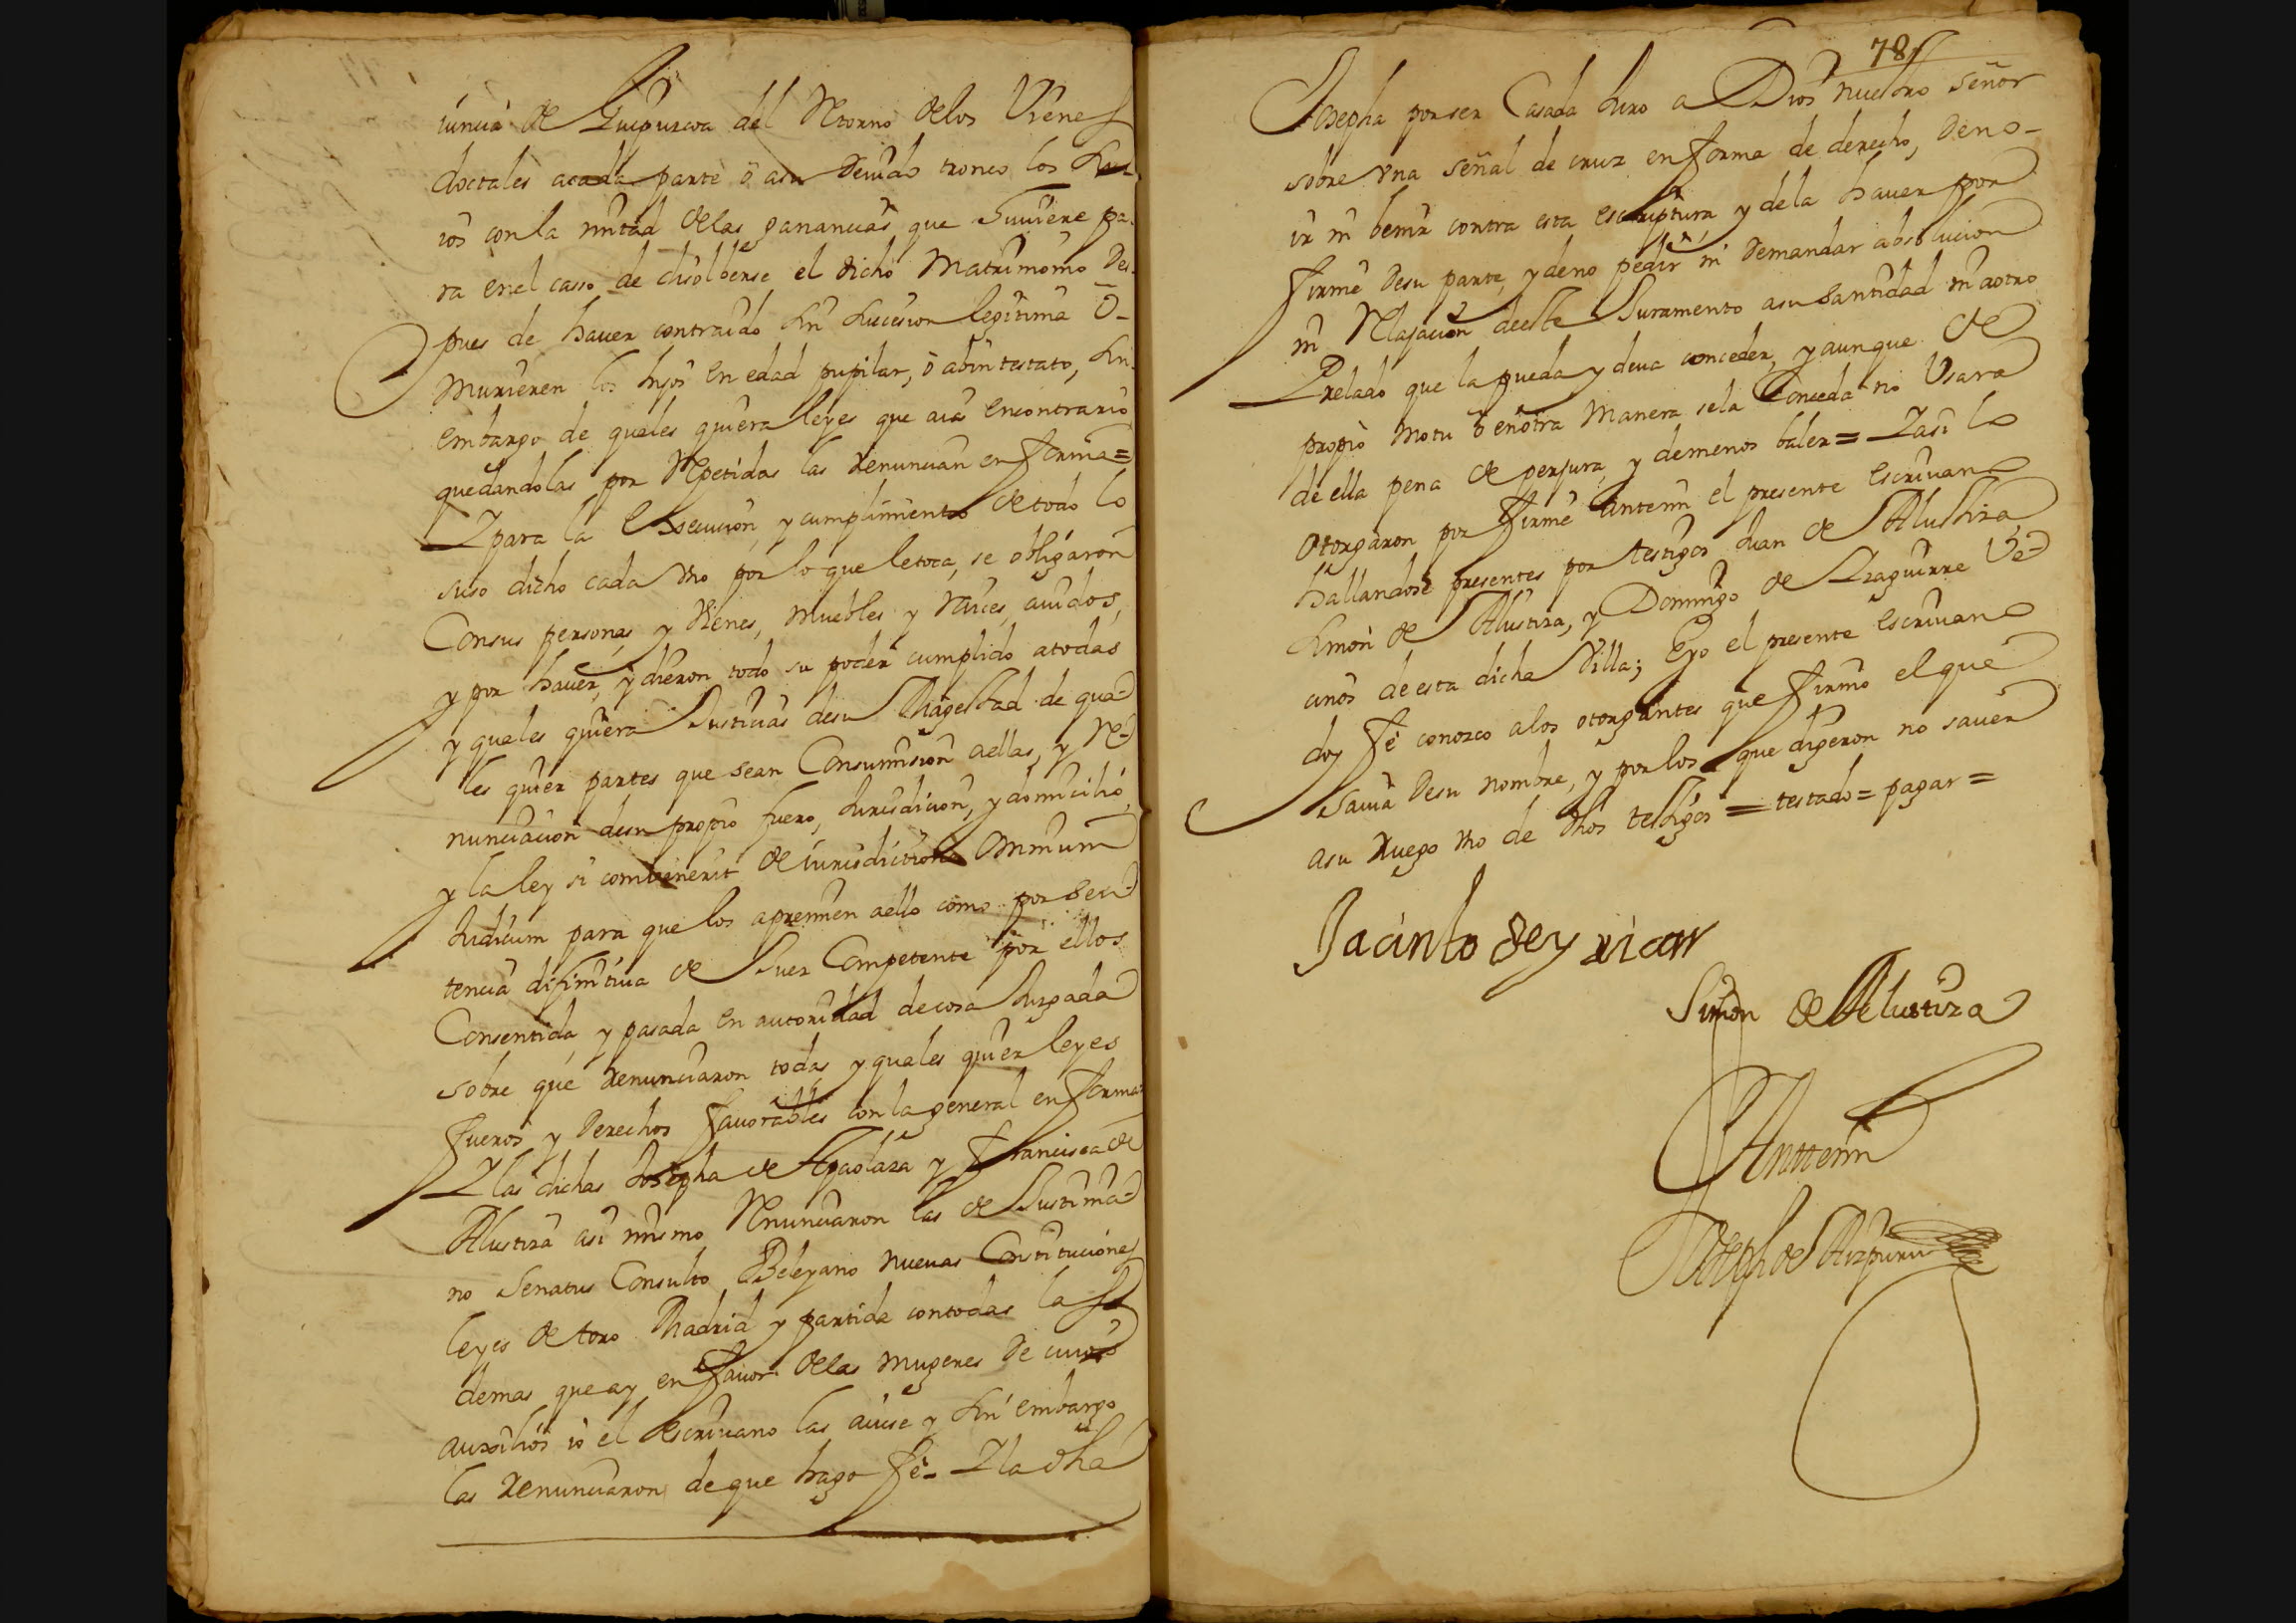 iuncia de Guipuzcoa del Retorno delos Vienes
doctales acada parte ô asu devido tronco los
ios con la mitad delas ganancias que Tuviere pa-
ra en el caso de disolberse el dicho Matrimonio Des-
pues de haver contraido sin sucesion legitima ô-
Murieren los hijos en edad pupilar, ô abintestato, sin-
embargo de quales quiera leyes que aia encontrario
quedandolas por Repetidas las renuncian en forma=
Y para la Execucion, y cumplimiento de todo lo
suso dicho cada vno por lo que letoca, se obligaron
Consus personas, y vienes, muebles y raices, auidos,
y por haver, y dieron todo su poder cumplido atodas
y quales quiera Justicias desu Magestad de qua-
les quier partes que sean Consumision aellas, y Re-
nunciacion desu propio fuero, Jurisdicion, y domicilio,
y la ley si combenerit de iurisdictione omnium
Judicum para que los apremien aello como por sen-
tencia difinitiua de Juez Competente por ellos
Consentida, y pasada en autoridad decosa Juzgada
sobre que renunciaron todas y quales quier leyes
fueros y Derechos favorables con la general en forma-
Y las dichas Josepha de Apaolaza y Francisca de
Alustiza asi mismo Renunciaron las de Justinia-
no Senatus Consulto Beleyano nuevas Constituciones
leyes de toro Madrid y partida contodas las
demas que ay en favor delas mugeres de cuios
auxilios io el escriuano las auise y sin embargo
las renunciaron, de que hago fê- Y la dha
78
Josepha por ser Casada Juro a Dios nuestro señor
sobre vna señal de cruz en forma de derecho, Deno-
ir ni benir contra esta escriptura, y dela haver por
firme Desu parte, y deno pedir ni Demandar absolucion
ni Relajacion deeste Juramento asu Santidad ni aotro
Prelado que la pueda y deua conceder, y aunque de
propio motu ô enotra Manera sela Conceda no Vsara
de ella pena de perjura, y demenos baler= Y asi lo
otorgaron por firme antemi el presente escriuano
hallandose presentes por testigos Juan de Alustiza,
Simon de Alustiza, y Domingo de Yzaguirre Ve-
cinos deesta dicha Villa; Eyo el presente escriuano
doy fê conozco alos otorgantes que firmo el que
savia Desu nombre, y por los que digeron no saver
asu ruego vno de dhos testigos = testado= pagar=
Jacinto de
Simon de Alustiza
Anttemi
Joseph de Aizpuru